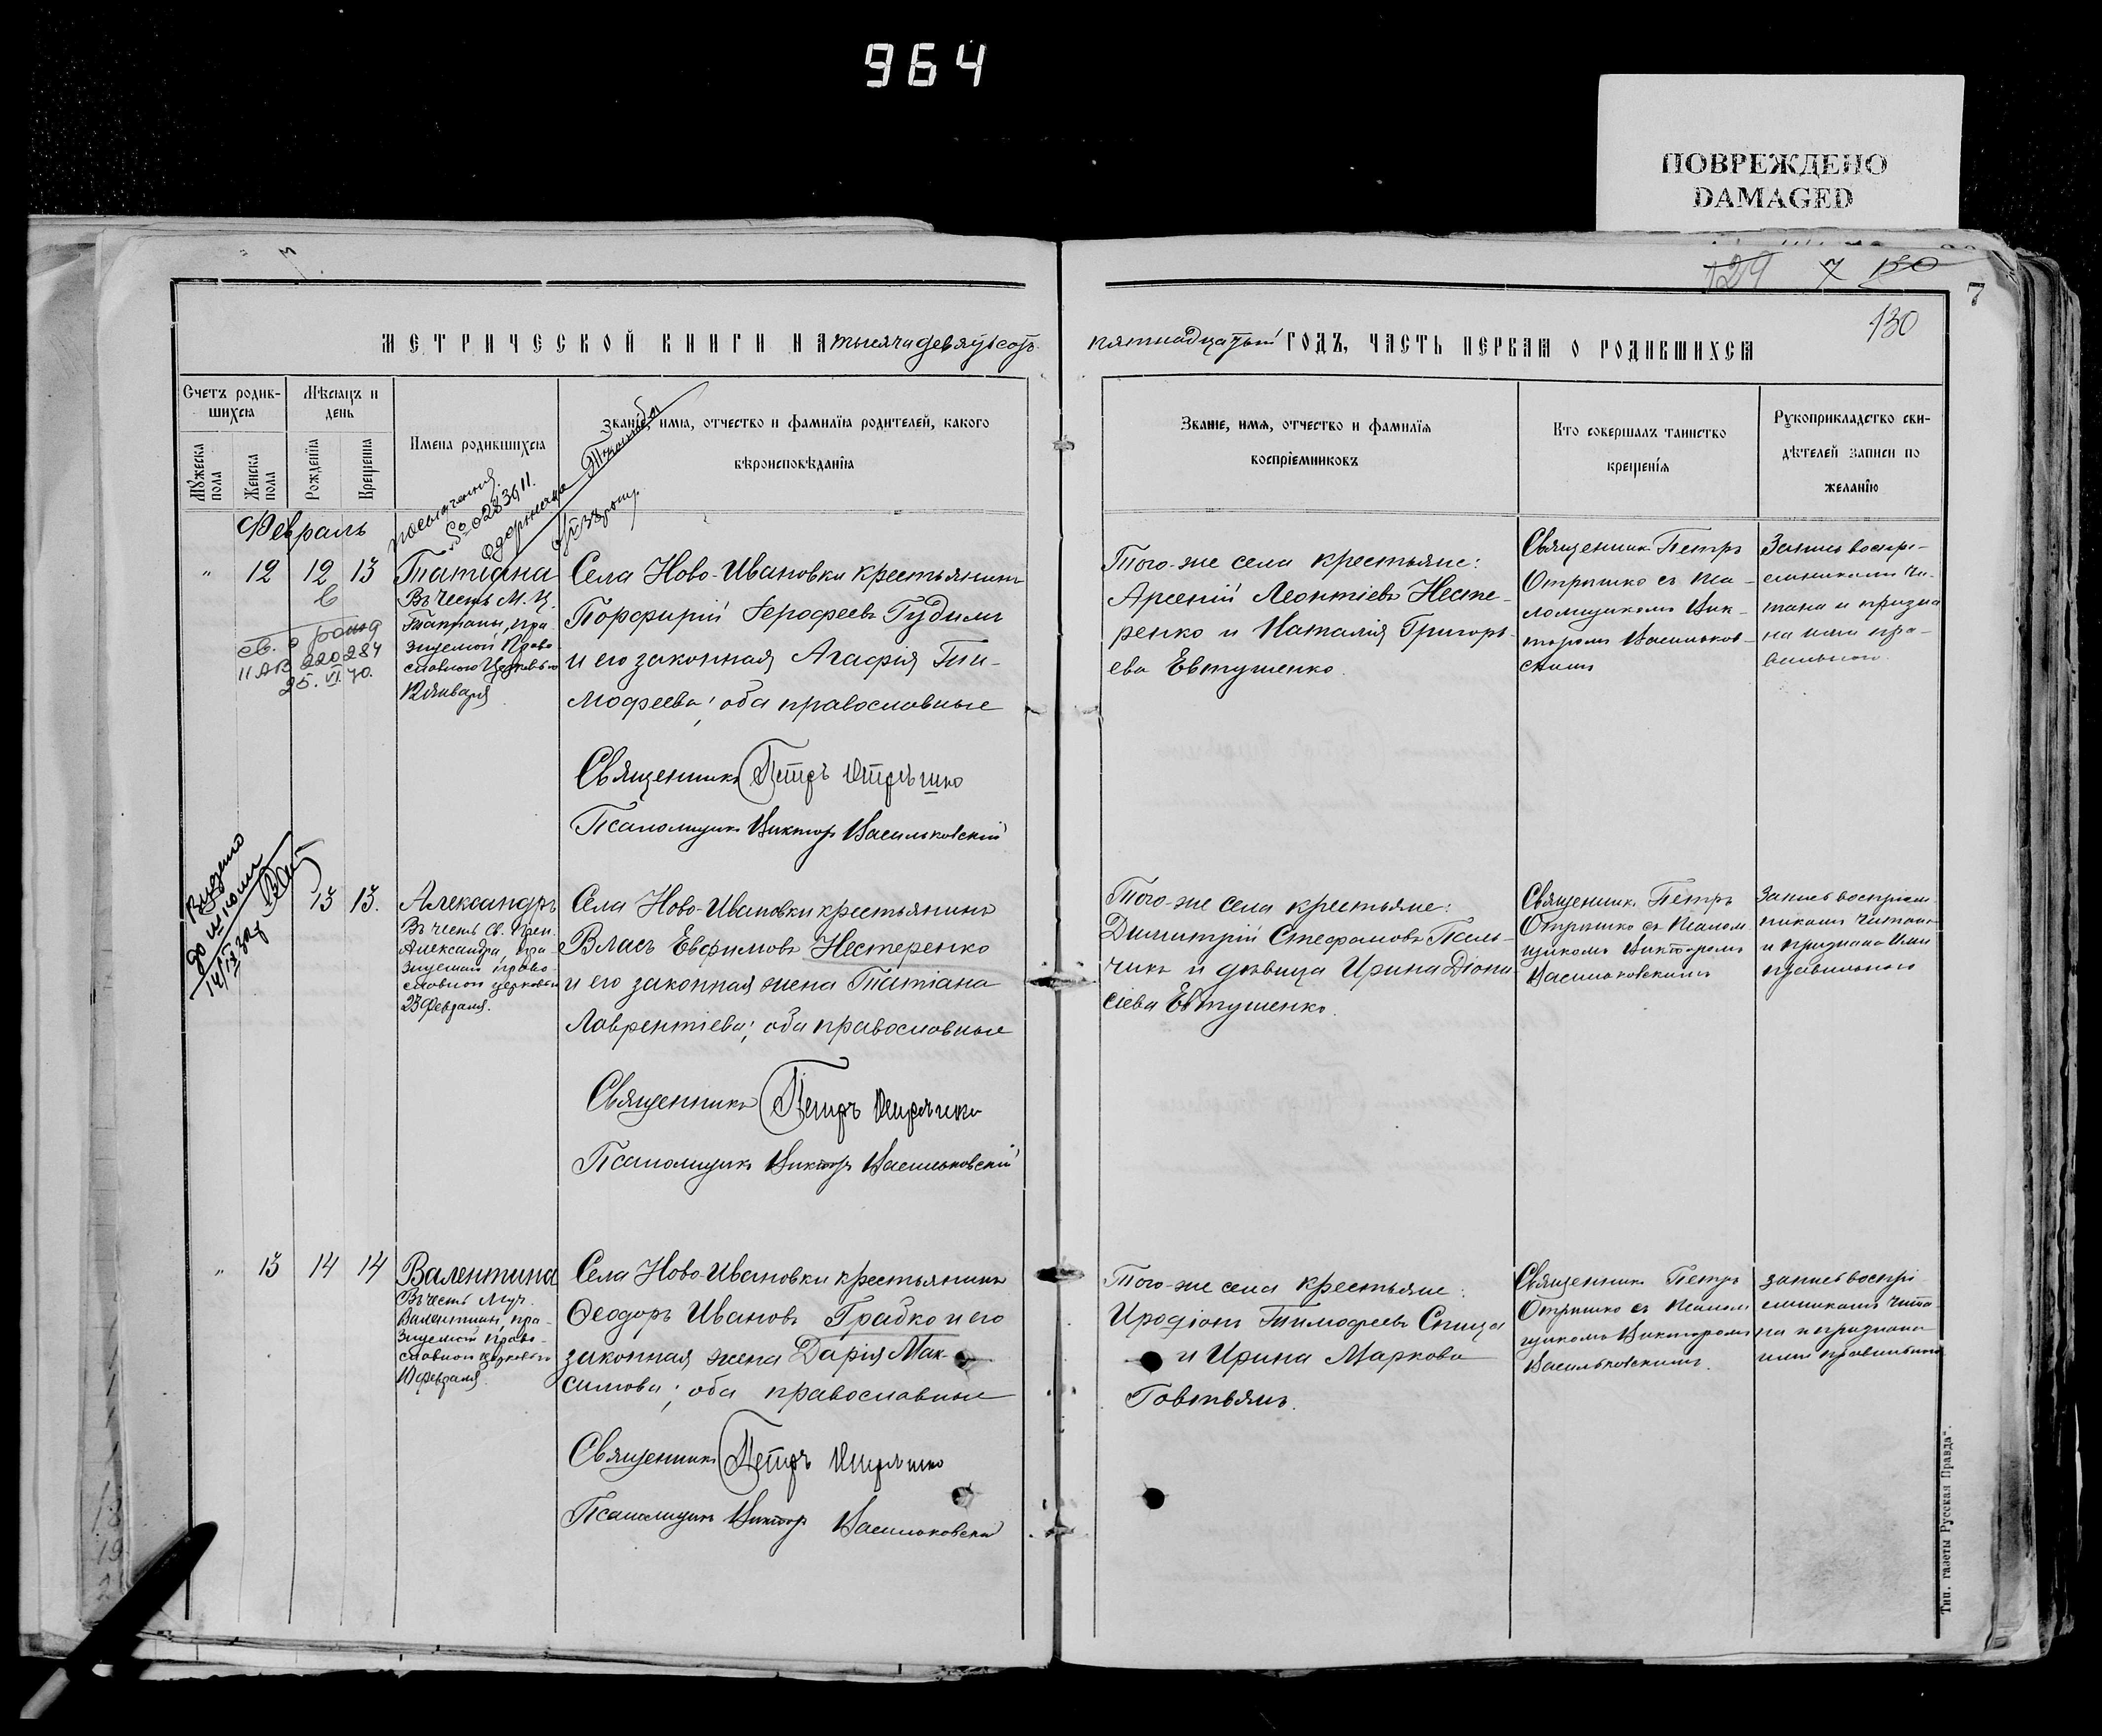 964
ПОВРЕЖДЕНО
DAMAGED
129 7 130
7
130
МЕТРИЧЕСКОЙ КНИГИ НА тысяча девятьсотъ
пятнадцатый ГОДЪ, ЧАСТЬ ПЕРВАЯ О РОДИВШИХСЯ
Счетъ родив-
шихся
Мѣсяцъ и
день
Мужеска
пола
Женска
пола
Рожденія
Крещенія
Имена родившихся
Званіе, имя, отчество и фамилія родителей, какого
вѣроисповѣданія
Званіе, имя, отчество и фамилія
воспріемниковъ
Кто совершалъ таинство
крещенія
Рукоприкладство сви-
дѣтелей записи по
желанію
Февраль
" 12 12 13
Татіана
Въ честь М. Ц.
Татіаны, пра
зднуемой Право
славною Церковью
12 Января
Села Ново-Ивановки крестьянинъ
Порфирій Іерофеевъ Гудимъ
и его законная Агафія Ти-
мофеева; оба православные
Священникъ Петръ Отрышко
Псаломщикъ Викторъ Васильковскій
Того-же села крестьяне:
Арсеній Леонтіевъ Несте-
ренко и Наталія Григорь-
ева Евтушенко.
Священникъ Петръ
Отрышко съ Пса-
ломщикомъ Вик-
торомъ Васильков-
скимъ
Запись воспрі-
емниками чи-
тана и призна
на ими пра-
вильною.
II АВ 220284
25. VI 70.
13 13.
Александръ
Въ честь Св. Преп.
Александра, пра
зднуемаго право-
славной церковью
23 Февраля.
Села Ново-Ивановки крестьянинъ
Власъ Евфимовъ Нестеренко
и его законная жена Татіана
Лаврентіева; оба православные
Священникъ Петръ Отрышко
Псаломщикъ Викторъ Васильковскій
Того-же села крестьяне:
Димитрій Стефановъ Паль-
чикъ и дѣвица Ирина Діони
сіева Евтушенко.
Священникъ Петръ
Отрышко съ Псалом
щикомъ Викторомъ
Васильковскимъ
Запись воспріем
никами читана
и признана ими
правильною
" 13 14 14
Валентина
Въ честь Муч.
Валентины, пра-
зднуемой право-
славной церковью
10 февраля.
Села Ново-Ивановки крестьянинъ
Ѳеодоръ Ивановъ Грабко и его
законная жена Дарія Мак-
симова; оба православные
Священникъ Петръ Отрышко
Псаломщикъ Викторъ Васильковскій
Того-же села крестьяне:
Иродіонъ Тимофеевъ Спица
и Ирина Маркова
Говтвянъ.
Священникъ Петръ
Отрышко съ Псалом
щикомъ Викторомъ
Васильковскимъ.
запись воспрі
емниками чита
на и признана
ими правильною
Тип. газеты Русская Правда".